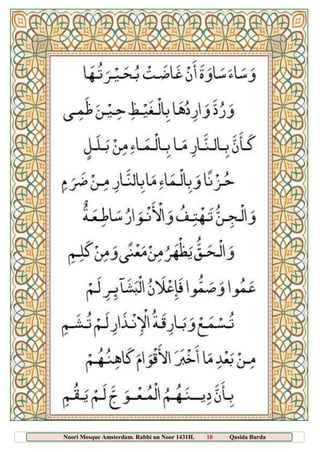 وَسَاءَ سَاوَةَ أَنْ غَاضَتْ بُحَيْرَتُهَا
وَرُدَّ وَارِدُهَا بِالْغَيْظِ حِيْنَ ظَمِى
كَأَنَّ بِالنَّارِ مَا بِالْمَاءِ مِنْ بَلَلٍ
حُزْنًا وَبِالْمَاءِ مَا بِالنَّارِ مِنْ ضَرَمِ
وَالْجِنُّ تَهْتِفُ وَالْأَنْوَارُ سَاطِعَةٌ
وَالْحَقُّ يَظْهَرُ مِنْ مَعْنًى وَمِنْ كَلِمِ
عَمُوا وَصَمُّوا فَإِعْلَانُ الْبَشَآئِرِ لَمْ
تُسْمَعْ وَبَارِقَةُ الْإِنْذَارِ لَمْ تُشَمِ
مِنْ بَعْدِ مَا أَخْبَرَ الْأَقْوَامَ كَاهِنُهُمْ
بِأَنَّ دِينَهُمُ الْمُعْوَجَّ لَمْ يَقُمِ
Noori Mosque Amsterdam. Rabbi un Noor 1431H. 18 Qasida Burda